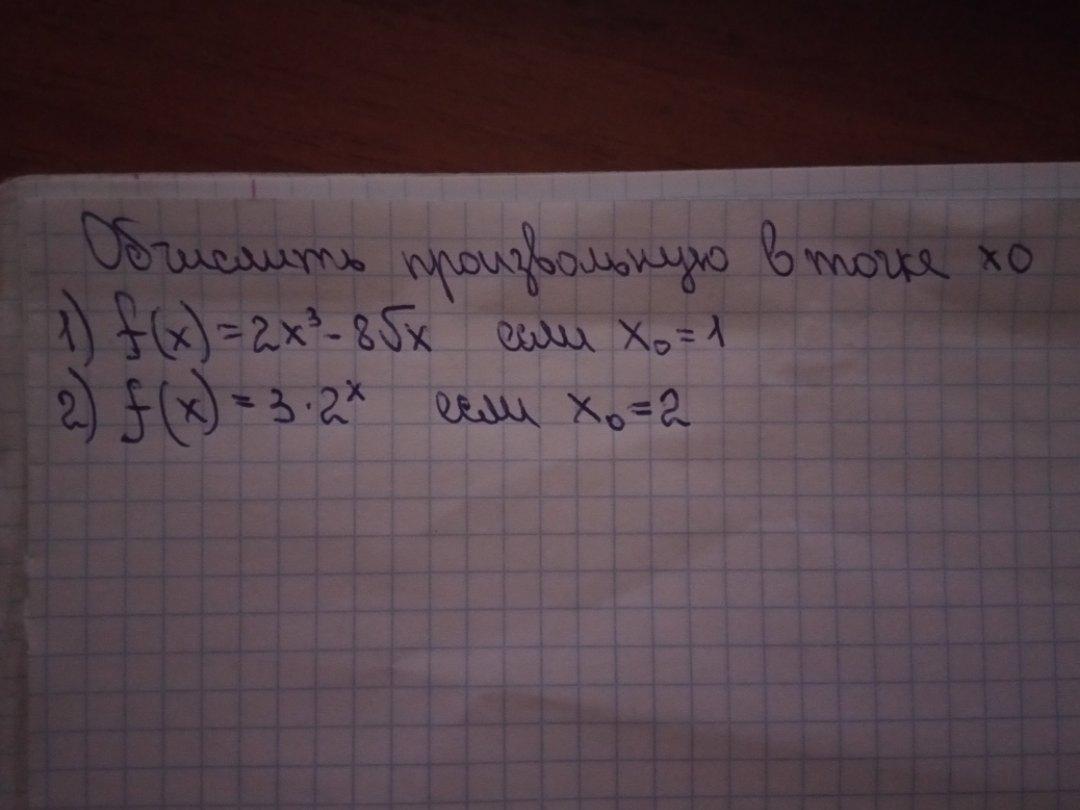 Обчислить произвольную в точке x0
1) f(x) = 2x³ - 8√x если x₀ = 1
2) f(x) = 3 · 2ˣ если x₀ = 2